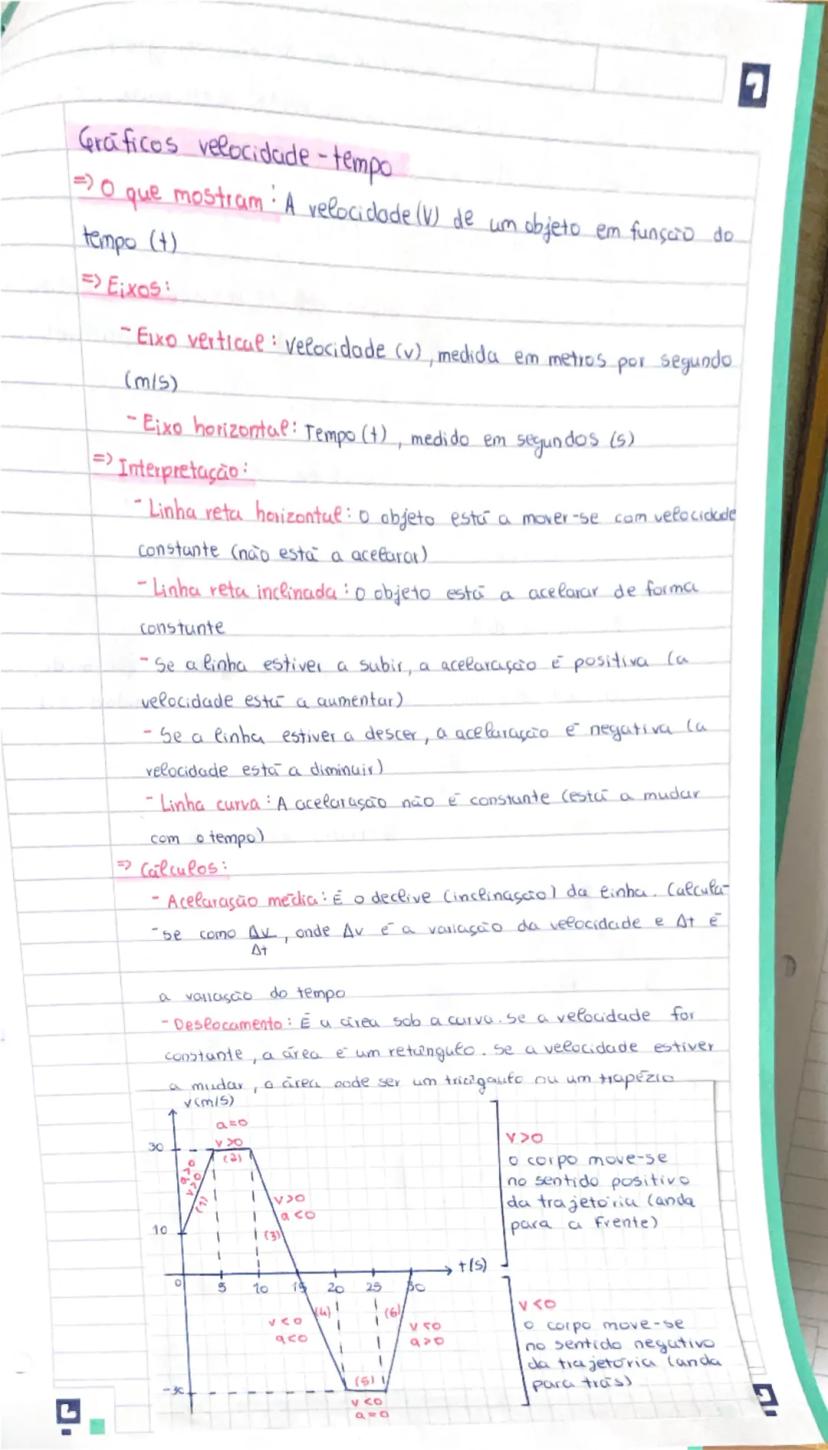 Gráficos velocidade-tempo
=> O que mostram: A velocidade (V) de um objeto em função do
tempo (t)
=> Eixos:
- Eixo vertical: velocidade (v), medida em metros por segundo
(m/s)
- Eixo horizontal: Tempo (t), medido em segundos (s)
=> Interpretação:
- Linha reta horizontal: O objeto está a mover-se com velocidade
constante (não está a acelarar)
- Linha reta inclinada: O objeto está a acelarar de forma
constante
- Se a linha estiver a subir, a acelaração é positiva (a
velocidade está a aumentar)
- Se a linha estiver a descer, a acelaração é negativa (a
velocidade está a diminuir)
- Linha curva: A acelaração não é constante (está a mudar
com o tempo)
=> Cálculos:
- Acelaração média: É o declive (inclinação) da linha. Calcula-
-se como Δv/Δt, onde Δv é a variação da velocidade e Δt é
a variação do tempo
- Deslocamento: É a área sob a curva. Se a velocidade for
constante, a área é um retângulo. Se a velocidade estiver
a mudar, a área pode ser um triângulo ou um trapézio
v(m/s)
a=0
30
v>0
(2)
a>0
v>0
(1)
v>0
a<0
10
(3)
t(s)
0 5 10 15 20 25 30
(4)
v<0
a<0
(6)
v<0
a>0
(5)
v<0
a=0
v>0
o corpo move-se
no sentido positivo
da trajetória (anda
para a frente)
v<0
o corpo move-se
no sentido negativo
da trajetória (anda
para trás)